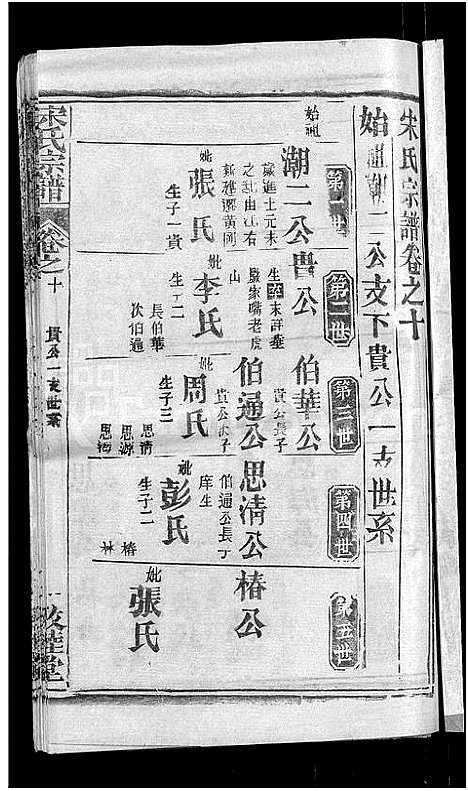 宋氏宗譜卷之十
始祖潮二公支下貴公一支世系
第一世
第二世
第三世
第四世
第五世
始祖
潮二公
歲進士元末
之亂由江右
新建遷黃岡
妣張氏
生子一貴
貴公
生卒未詳葬
嚴家嘴老虎
山
妣李氏
生子二
長伯華
次伯通
伯華公
貴公長子
伯通公
貴公次子
妣周氏
生子三
思清
思源
思
思清公
伯通公長子
庠生
妣彭氏
生子二
椿
林
椿公
妣張氏
宋氏宗譜
卷之十
貴公一支世系
堂